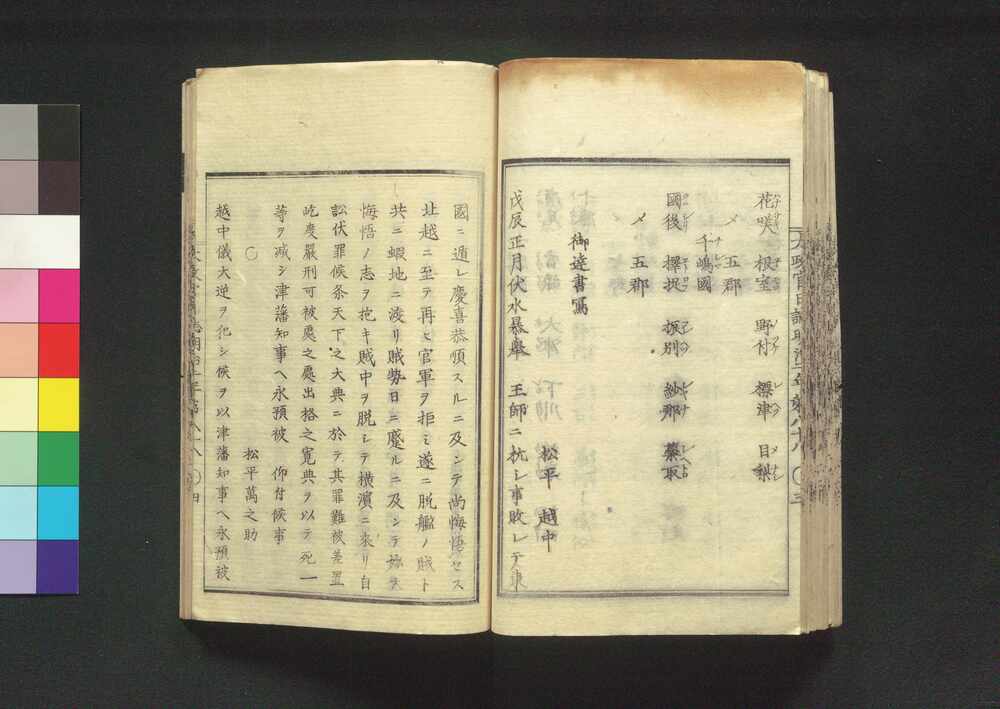 花咲 根室 野付 標津 目梨
ハナサキ ネムロ ノツケ シベツ メナシ
〆 五郡
千嶋國
國後 擇捉 振別 紗那 蘂取
〆 五郡
御達書寫
松平 越中
戊辰正月伏水暴擧 王師ニ抗シ事敗レテ東
國ニ遁レ慶喜恭順スルニ及ンテ尚悔悟セス
北越ニ至テ再ヒ官軍ヲ拒ミ遂ニ脱艦ノ賊ト
共ニ蝦地ニ渡リ賊勢日ニ蹙ルニ及ンテ始テ
悔悟ノ志ヲ抱キ賊中ヲ脱シテ横濱ニ來リ自
訟伏罪候条天下之大典ニ於テ其罪難被差置
屹度嚴刑可被處之處出格之寛典ヲ以テ死一
等ヲ減シ津藩知事ヘ永預被 仰付候事
〇 松平萬之助
越中儀大逆ヲ犯シ候ヲ以津藩知事ヘ永預被